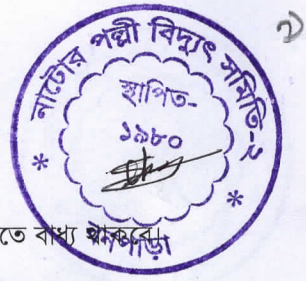 ২)
নাটোর পল্লী বিদ্যুৎ সমিতি-২
স্থাপিত-
১৯৮০
তে বাধ্য থাকবে।